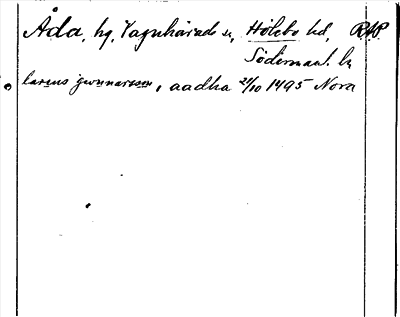 Åda, hg, Vagnhärads sn, Hölebo hd, RAP
Södermanl. ln
larens gwnnarsson, aadha 21/10 1495 Nora